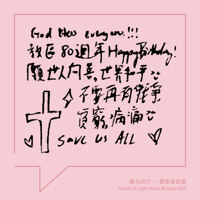 God bless everyone!!!
教區80週年Happy Birthday!
願世人向善,世界和平
不要再有戰爭
貧窮,病痛
SAVE US ALL
榮光同行 — 願景留言牆
Journey in Light: Vision Message Wall